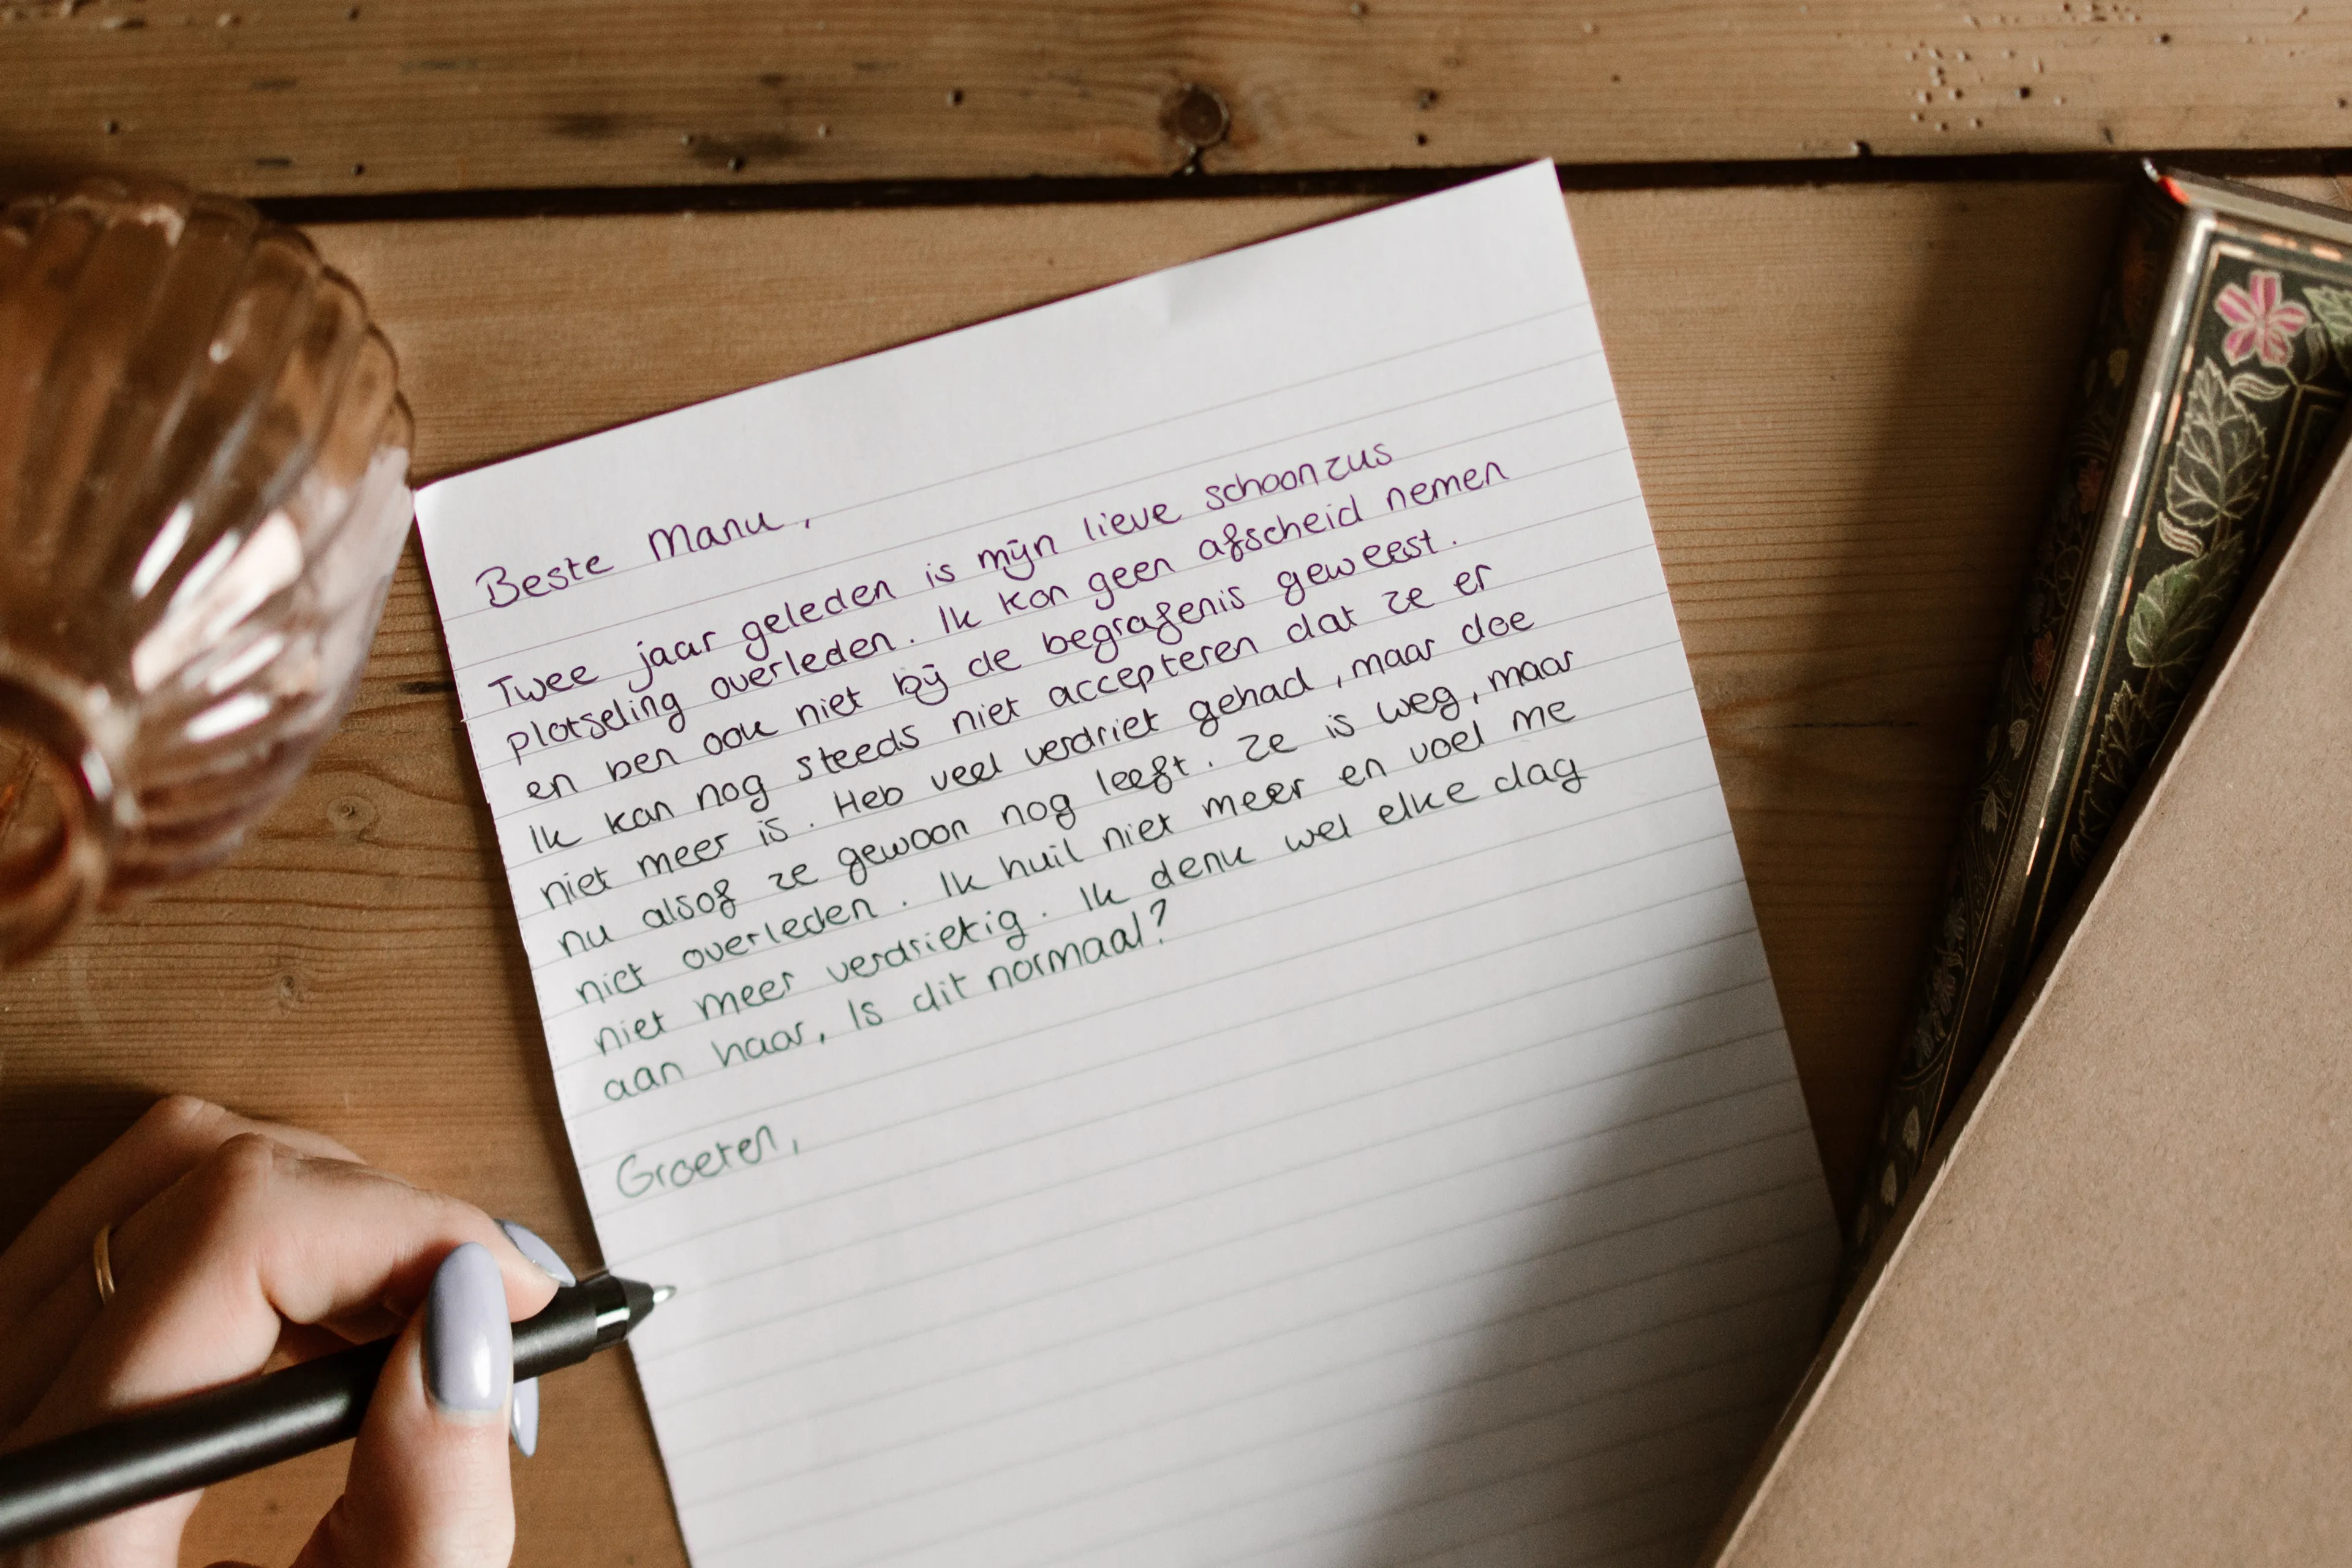 Beste Manu,
Twee jaar geleden is mijn lieve schoonzus
plotseling overleden. Ik kon geen afscheid nemen
en ben ook niet bij de begrafenis geweest.
Ik kan nog steeds niet accepteren dat ze er
niet meer is. Heb veel verdriet gehad, maar doe
nu alsof ze gewoon nog leeft. Ze is weg, maar
niet overleden. Ik huil niet meer en voel me
niet meer verdrietig. Ik denk wel elke dag
aan haar, Is dit normaal?
Groeten,